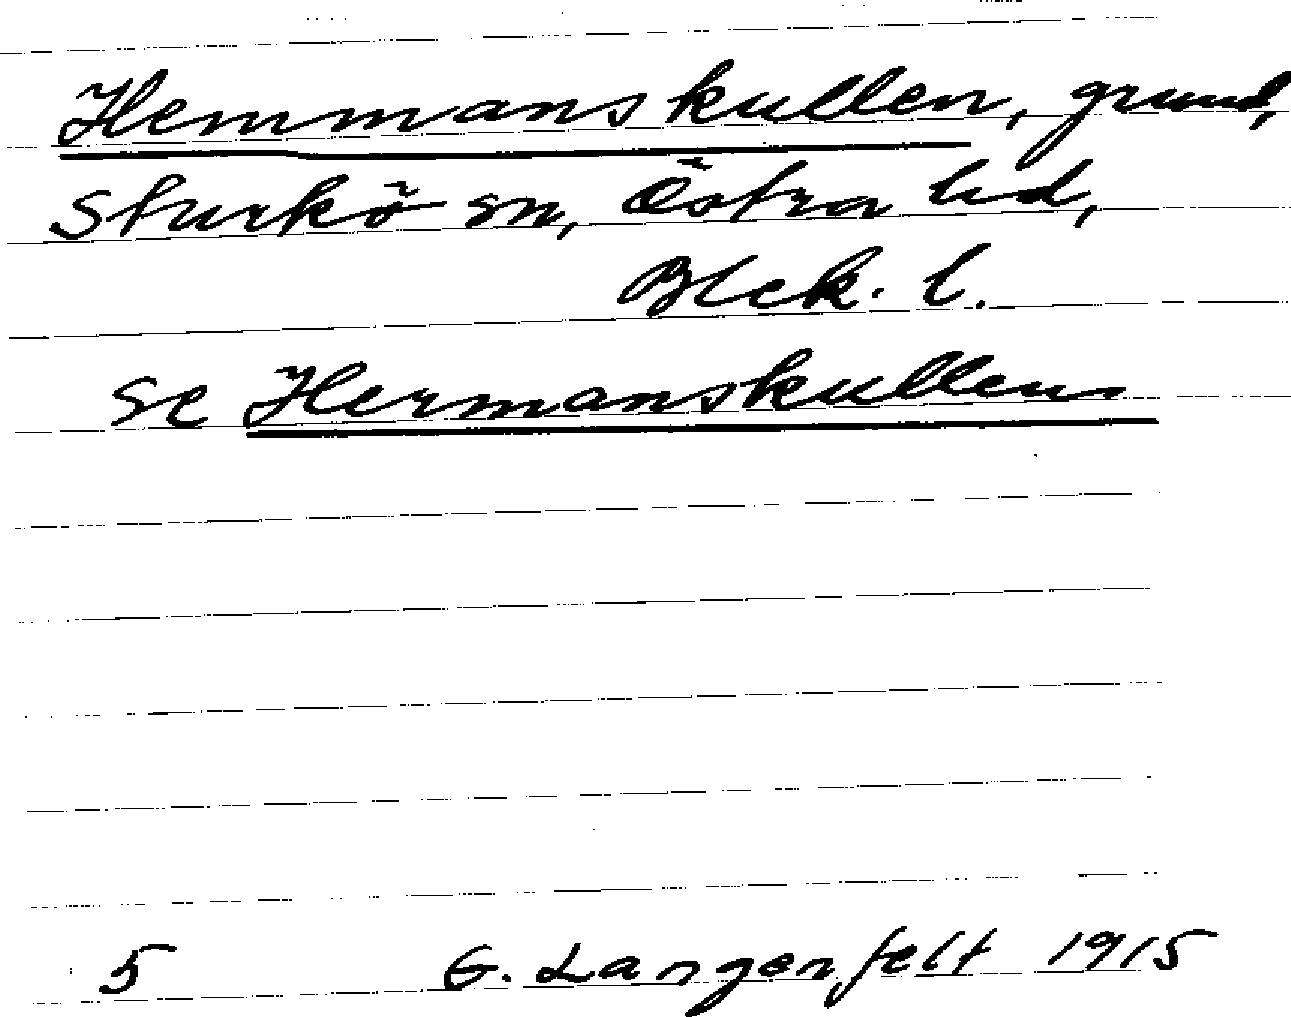 Hemmanskullen, grund,
Sturkö sn, Östra hd,
Blek. l.
se Hermanskullen
5 G. Langenfelt 1915